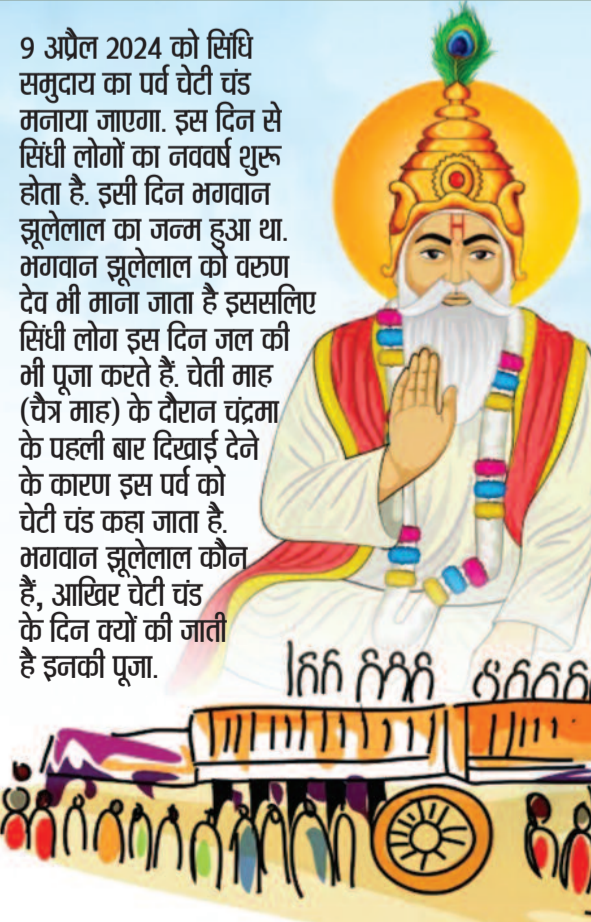 9 अप्रैल 2024 को सिंधि
समुदाय का पर्व चेटी चंड
मनाया जाएगा. इस दिन से
सिंधी लोगों का नववर्ष शुरू
होता है. इसी दिन भगवान
झूलेलाल का जन्म हुआ था.
भगवान झूलेलाल को वरुण
देव भी माना जाता है इससलिए
सिंधी लोग इस दिन जल की
भी पूजा करते हैं. चेती माह
(चैत्र माह) के दौरान चंद्रमा
के पहली बार दिखाई देने
के कारण इस पर्व को
चेटी चंड कहा जाता है.
भगवान झूलेलाल कौन
हैं, आखिर चेटी चंड
के दिन क्यों की जाती
है इनकी पूजा.